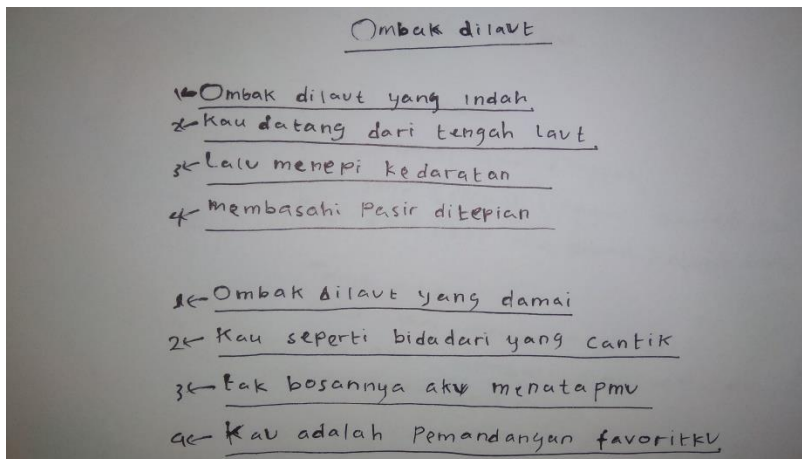 Ombak dilaut
1← Ombak dilaut yang indah
2← Kau datang dari tengah laut
3← Lalu menepi kedaratan
4← Membasahi Pasir ditepian
1← Ombak dilaut yang damai
2← Kau seperti bidadari yang cantik
3← tak bosannya aku menatapmu
4← Kau adalah Pemandangan favoritku